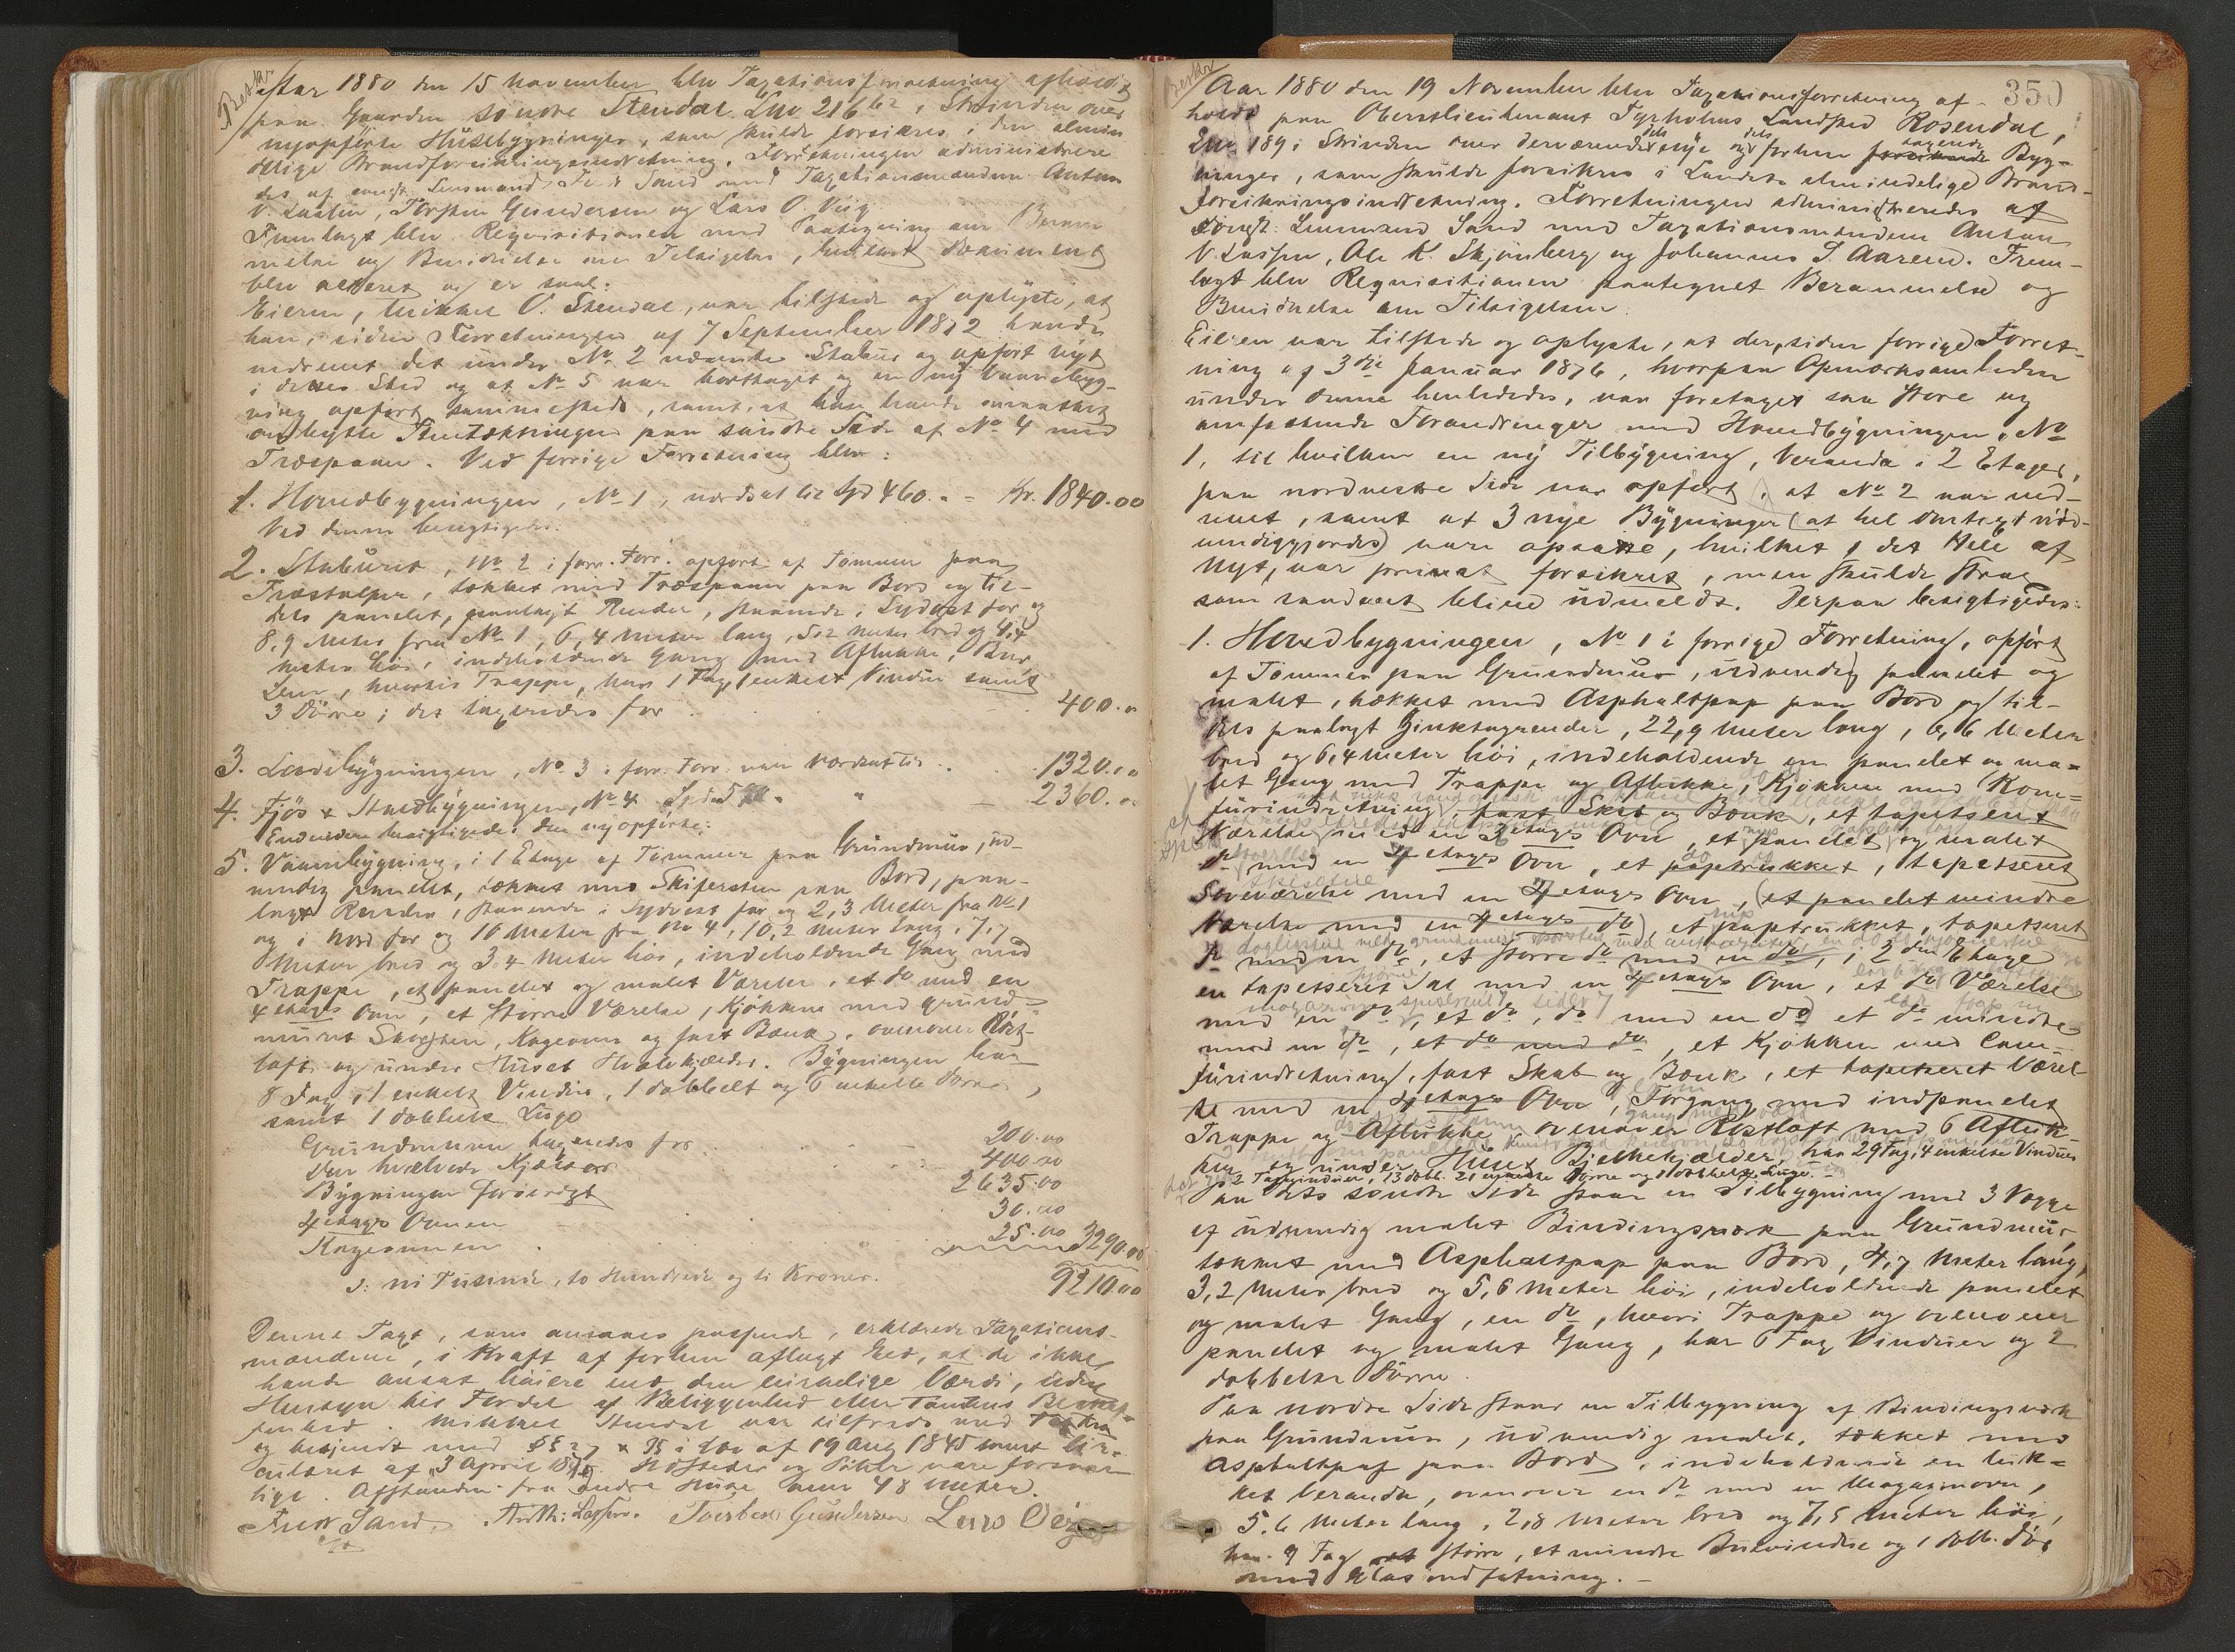 Beskr
Aar 1880 den 15 November blev Taxationsforretning afholdt
paa Gaarden søndre Stendal Lno 216 b2 i Strinden over
nyopførte Husebygninger, som skulde forsikres i den almin
delige Brandforsikringsindretning. Forretningen administrere
des af Lensmand Fredr Sand med Taxationsmændene Anton
V. Lassen, Torsten Gundersen og Lars O. Vig.
Fremlagt blev Requisitionen med Paategning om Beram
melse og Beviidnelse om Tilsigelse, hvilket Document
blev acteret og er saal:
Eieren, Mikkel O. Stendal, var tilstede og oplyste, at
han, siden Forretningen af 7 September 1872 havde
nedrevet det under No 2 nævnte Stabur og opført nyt
i dets Sted og at No 5 var borttaget og en ny Vaanebyg-
ning opført sammesteds, samt, at han havde
ombyttet Steintækningen paa søndre Side af No 4 med
Træspaan. Ved forrige Forretning blev:
1. Hovedbygningen, No 1, vurdert til Spd 460. = Kr. 1840.00
Ved denne besigtigedes:
2. Staburet, No 2 i forr. Forr. opført af Tømmer paa
Træstolper, tækket med Træspaan paa Bord og til-
dels panelet, paalagt Render, staaende i Sydvest for og
8,9 Meter fra No 1, 6,4 Meter lang, 5,2 Meter bred og 4,4
Meter høi, indeholdende Gang med Aflukke, Bur,
Lem, hvortil Trappe, har 1 Fag, 1 enkelt Vindue samt
3 Døre; det taxeredes for 400.00
3. Ladebygningen, No 3 i forr. Forr. var vurdert til 1320.00
4. Fjøs & Staldbygningen, No 4 Spd 590 " " 2360.00
Endvidere besigtigedes den nyopførte:
5. Vaanebygning, i 1 Etage af Tømmer paa Grundmuur, ud-
vendig panelet, tækket med Skifersten paa Bord, paa-
lagt Render, staaende i Sydvest for og 2,3 Meter fra No 1
og i Nord for og 16 Meter fra No 4, 10,2 Meter lang, 7,7
Meter bred og 3,4 Meter høi, indeholdende Gang med
Trappe, et panelet og malet Værelse, et do med en
4 etages Ovn, et større Værelse, Kjøkken med grund-
muret Skorsten, Kogeovn og fast Bænk, ovenover Røst-
loft og under Huset Hvalvkjælder. Bygningen har
8 Fag, 1 enkelt Vindue, 1 dobbelt og 6 enkelte Døre,
samt 1 dobbelt Luge
Grundmuren taxeredes for 200.00
Den hvælvede Kjælder 400.00
Bygningen forøvrigt 2635.00
4 etages Ovnen 30.00
Kogeovnen 25.00 3290.00
ɔ: ni Tusinde, to Hundrede og ti Kroner. 9210.00
Denne Taxt, som ansaaes passende, erklærede Taxations-
mændene, i Kraft af forhen aflagt Eed, at de ikke
havde ansat høiere end den virkelige Værdi, uden
Hensyn til Fordel af Beliggenhed eller Tomtens Beskaf-
fenhed. Mikkel Stendal var tilfreds med Taxten
og bekjendt med §§ 27 & 35 i Lov af 19 Aug 1845 samt Cir-
culæret af 3 April 18. Ildsteder og Piber vare forsvar
lige. Afstanden fra andre Huse over 48 Meter.
Fredr Sand. Anth: Lassen. Torsten Gundersen Lars Vig
350
Beskr
Aar 1880 den 19 November blev Taxationsforretning af-
holdt paa Oberstlieutenant Tyrholms Landsted Rosendal,
Lno 189 i Strinden over derværende dels nye og dels forhen taxerede Byg-
ninger, som skulde forsikres i Landets almindelige Brand-
forsikringsindretning. Forretningen administreredes af
Lensmand Sand med Taxationsmændene Anton
V. Lassen, Ole K. Skjønberg og Johannes T. Aarend. Frem-
lagt blev Requisitionen paategnet Berammelse og
Bevidnelse om Tilsigelsen.
Eieren var tilstede og oplyste, at der, siden forrige Forret-
ning af 3die Januar 1876, hvorpaa Opmærksomheden
under denne henlededes, var foretaget saa store og
omfattende Forandringer med Hovedbygningen, No
1, til hvilken en ny Tilbygning, Veranda i 2 Etager,
paa nordvestre Side var opført, at No 2 var ned-
revet, samt at 3 nye Bygninger (at hel Omtaxt nød-
vendiggjordes) vare opsatte, hvilket, det Hele af
Nyt, var privat forsikret, men skulde strax
som vurderet blive udmeldt. Derpaa besigtigedes:
1. Hovedbygningen, No 1 i forrige Forretning, opført
af Tømmer paa Grundmuur, udvendig panelet og
malet, tækket med Asphaltpap paa Bord og til-
dels paalagt Zinktagrender, 22,9 Meter lang, 6,6 Meter
bred og 6,4 Meter høi, indeholdende en panelet og ma-
let Gang med Trappe og Aflukke, Kjøkken med Kom-
fürindretning, fast Skab og Bænk, et tapetseret
Værelse med en 3 etages Ovn, et panelet og malet
do med en 4 etages Ovn, et paptrukket, tapetseret
Soveværelse med en 4 etages Ovn, (et panelet mindre
Værelse med en 4 etages do), et paptrukket, tapetseret
do med en do, et større do med en do, i 2den Etage
en tapetseret Sal med en 4 etages Ovn, et do Værelse
med en do, et do, do med en do et do mindre
med en do, et do med do, et Kjøkken med Com-
fürindretning, fast Skab og Bænk, et tapetseret Værel
se med en 3 etages Ovn, Forgang med indpanelet
Trappe og Aflukke ovenover Røstloft med 6 Afluk-
ker og under Huset Bjelkekjælder, har 29 Fag, 4 enkelte Vinduer
og 2 Tagvinduer, 13 dobb. 21 enkelte Døre og 1 dobbelt Luge. —
Paa dets søndre Side staar en Tilbygning med 3 Vægge
af udvendig malet Bindingsværk paa Grundmuur
tækket med Asphaltpap paa Bord, 4,7 Meter lang,
3,2 Meter bred og 5,6 Meter høi, indeholdende panelet
og malet Gang, en do, hvori Trappe og ovenover
panelet og malet Gang, har 6 Fag Vinduer og 2
dobbelte Døre.
Paa nordre Side staar en Tilbygning af Bindingsværk
paa Grundmuur, udvendig malet, tækket med
Asphaltpap paa Bord, indeholdende en luk-
ket Veranda, ovenover en do med en Magazinovn,
5,6 Meter lang, 2,8 Meter bred og 7,5 Meter høi,
har 9 Fag større, et mindre Buevindue og 1 dobb. Dør
med Glasindfatning. —